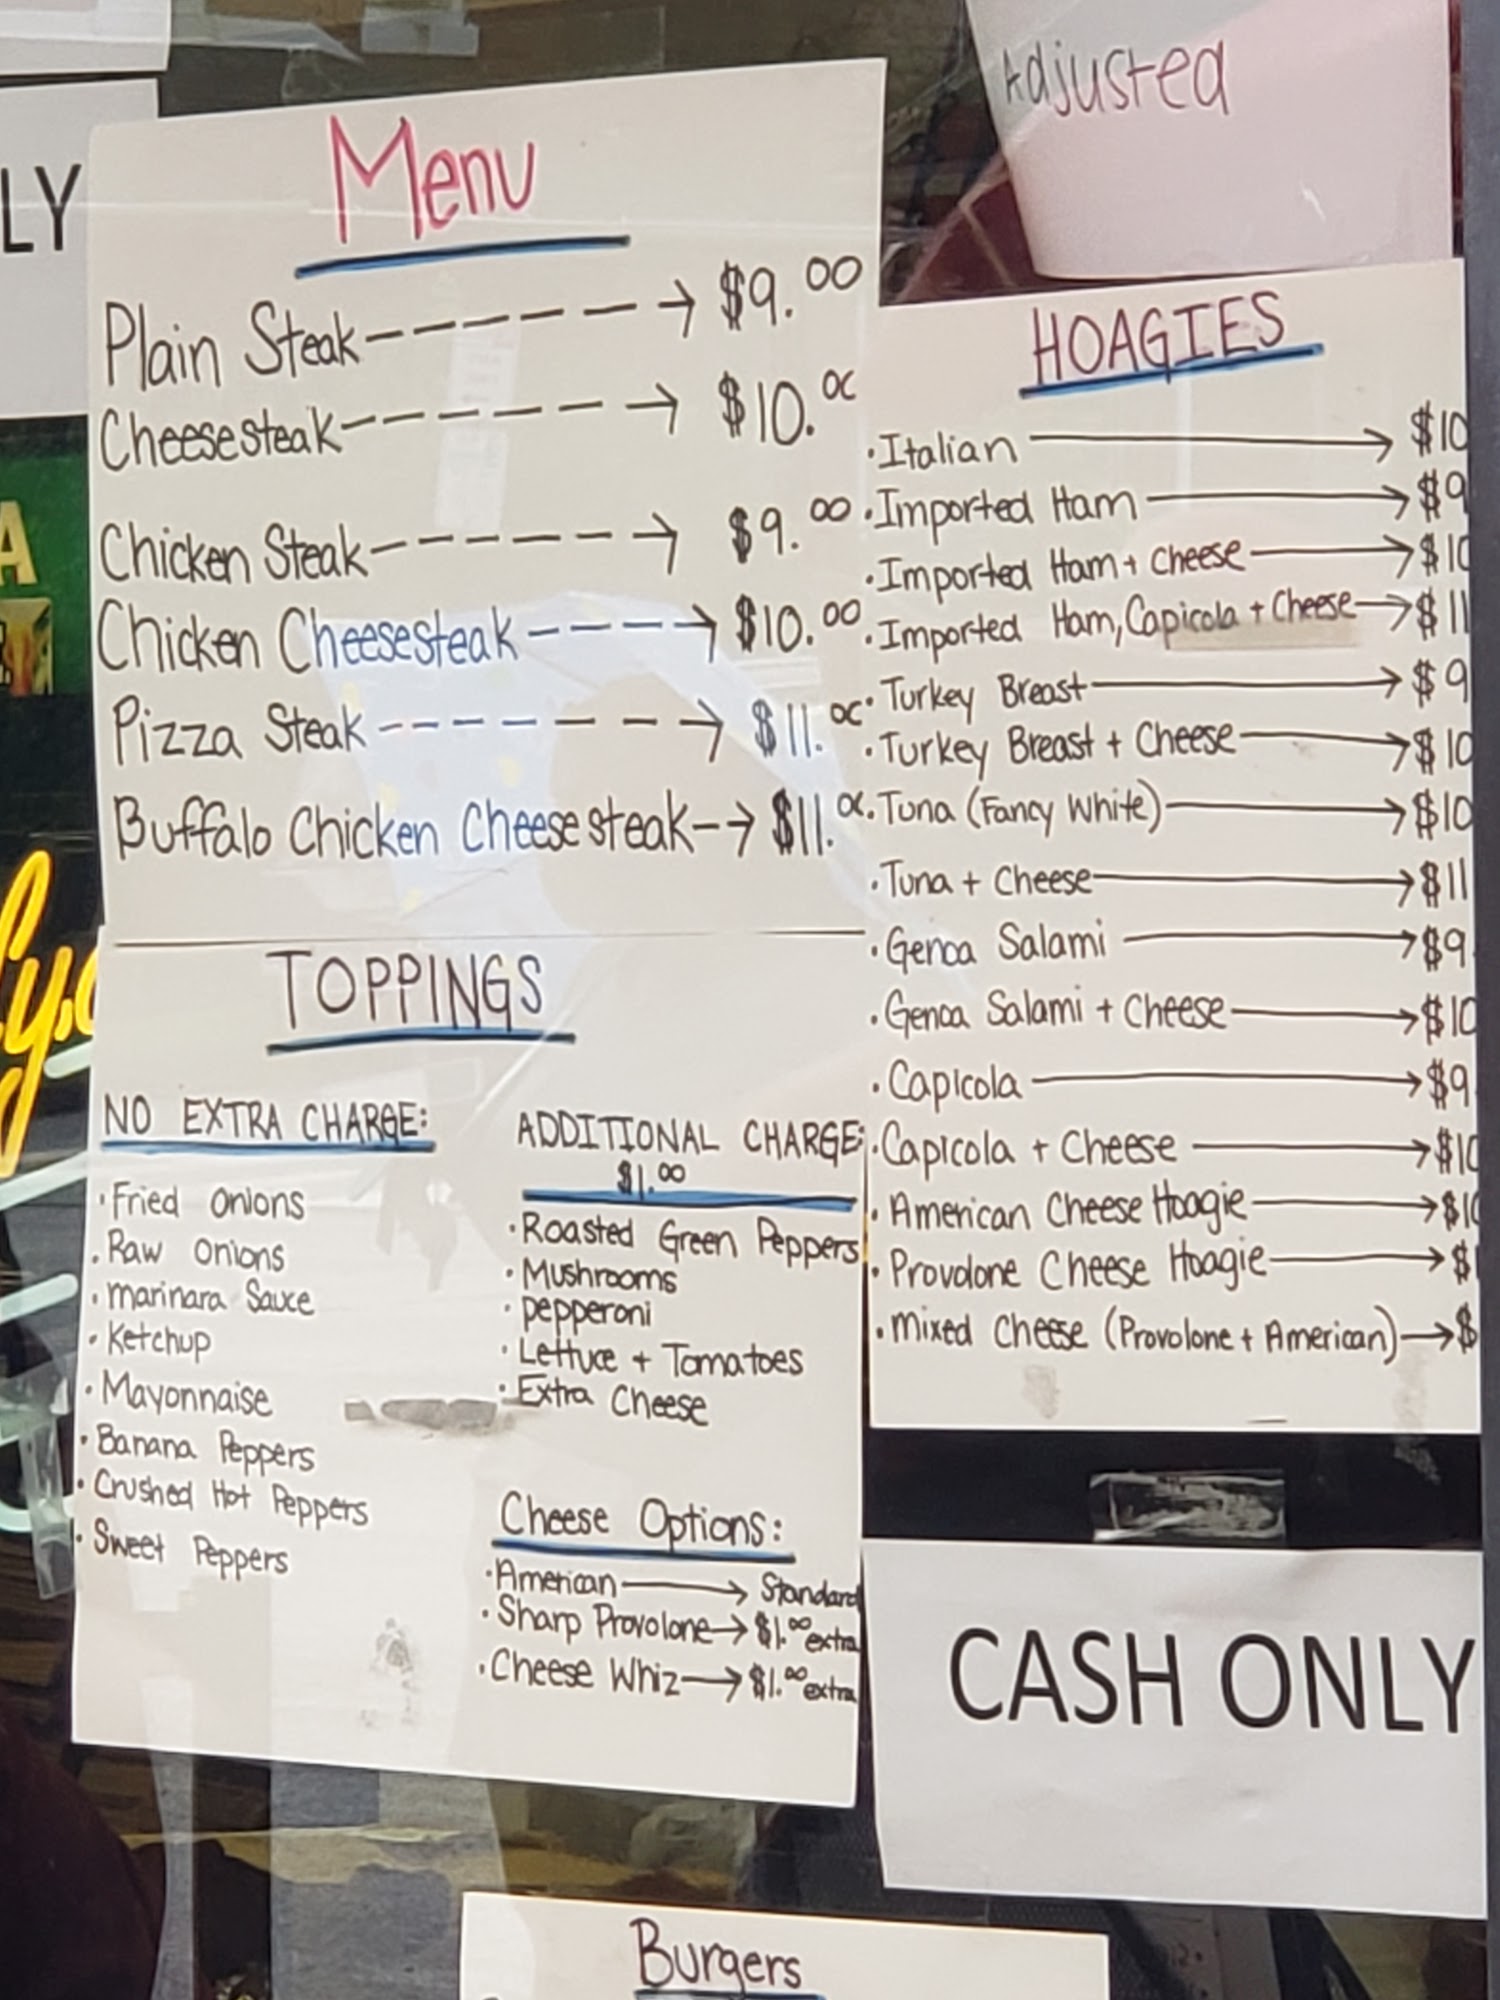 Adjusted
LY
Menu
Plain Steak $9.00
Cheesesteak $10.00
Chicken Steak $9.00
Chicken Cheesesteak $10.00
Pizza Steak $11.00
Buffalo Chicken Cheesesteak $11.00
TOPPINGS
NO EXTRA CHARGE:
• Fried Onions
• Raw Onions
• Marinara Sauce
• Ketchup
• Mayonnaise
• Banana Peppers
• Crushed Hot Peppers
• Sweet Peppers
ADDITIONAL CHARGE:
$1.00
• Roasted Green Peppers
• Mushrooms
• Pepperoni
• Lettuce + Tomatoes
• Extra Cheese
Cheese Options:
• American → Standard
• Sharp Provolone → $1.00 extra
• Cheese Whiz → $1.00 extra
HOAGIES
• Italian → $10
• Imported Ham → $9
• Imported Ham + Cheese → $10
• Imported Ham, Capicola + Cheese → $11
• Turkey Breast → $9
• Turkey Breast + Cheese → $10
• Tuna (Fancy White) → $10
• Tuna + Cheese → $11
• Genoa Salami → $9
• Genoa Salami + Cheese → $10
• Capicola → $9
• Capicola + Cheese → $10
• American Cheese Hoagie → $10
• Provolone Cheese Hoagie → $
• Mixed Cheese (Provolone + American) → $
CASH ONLY
Burgers